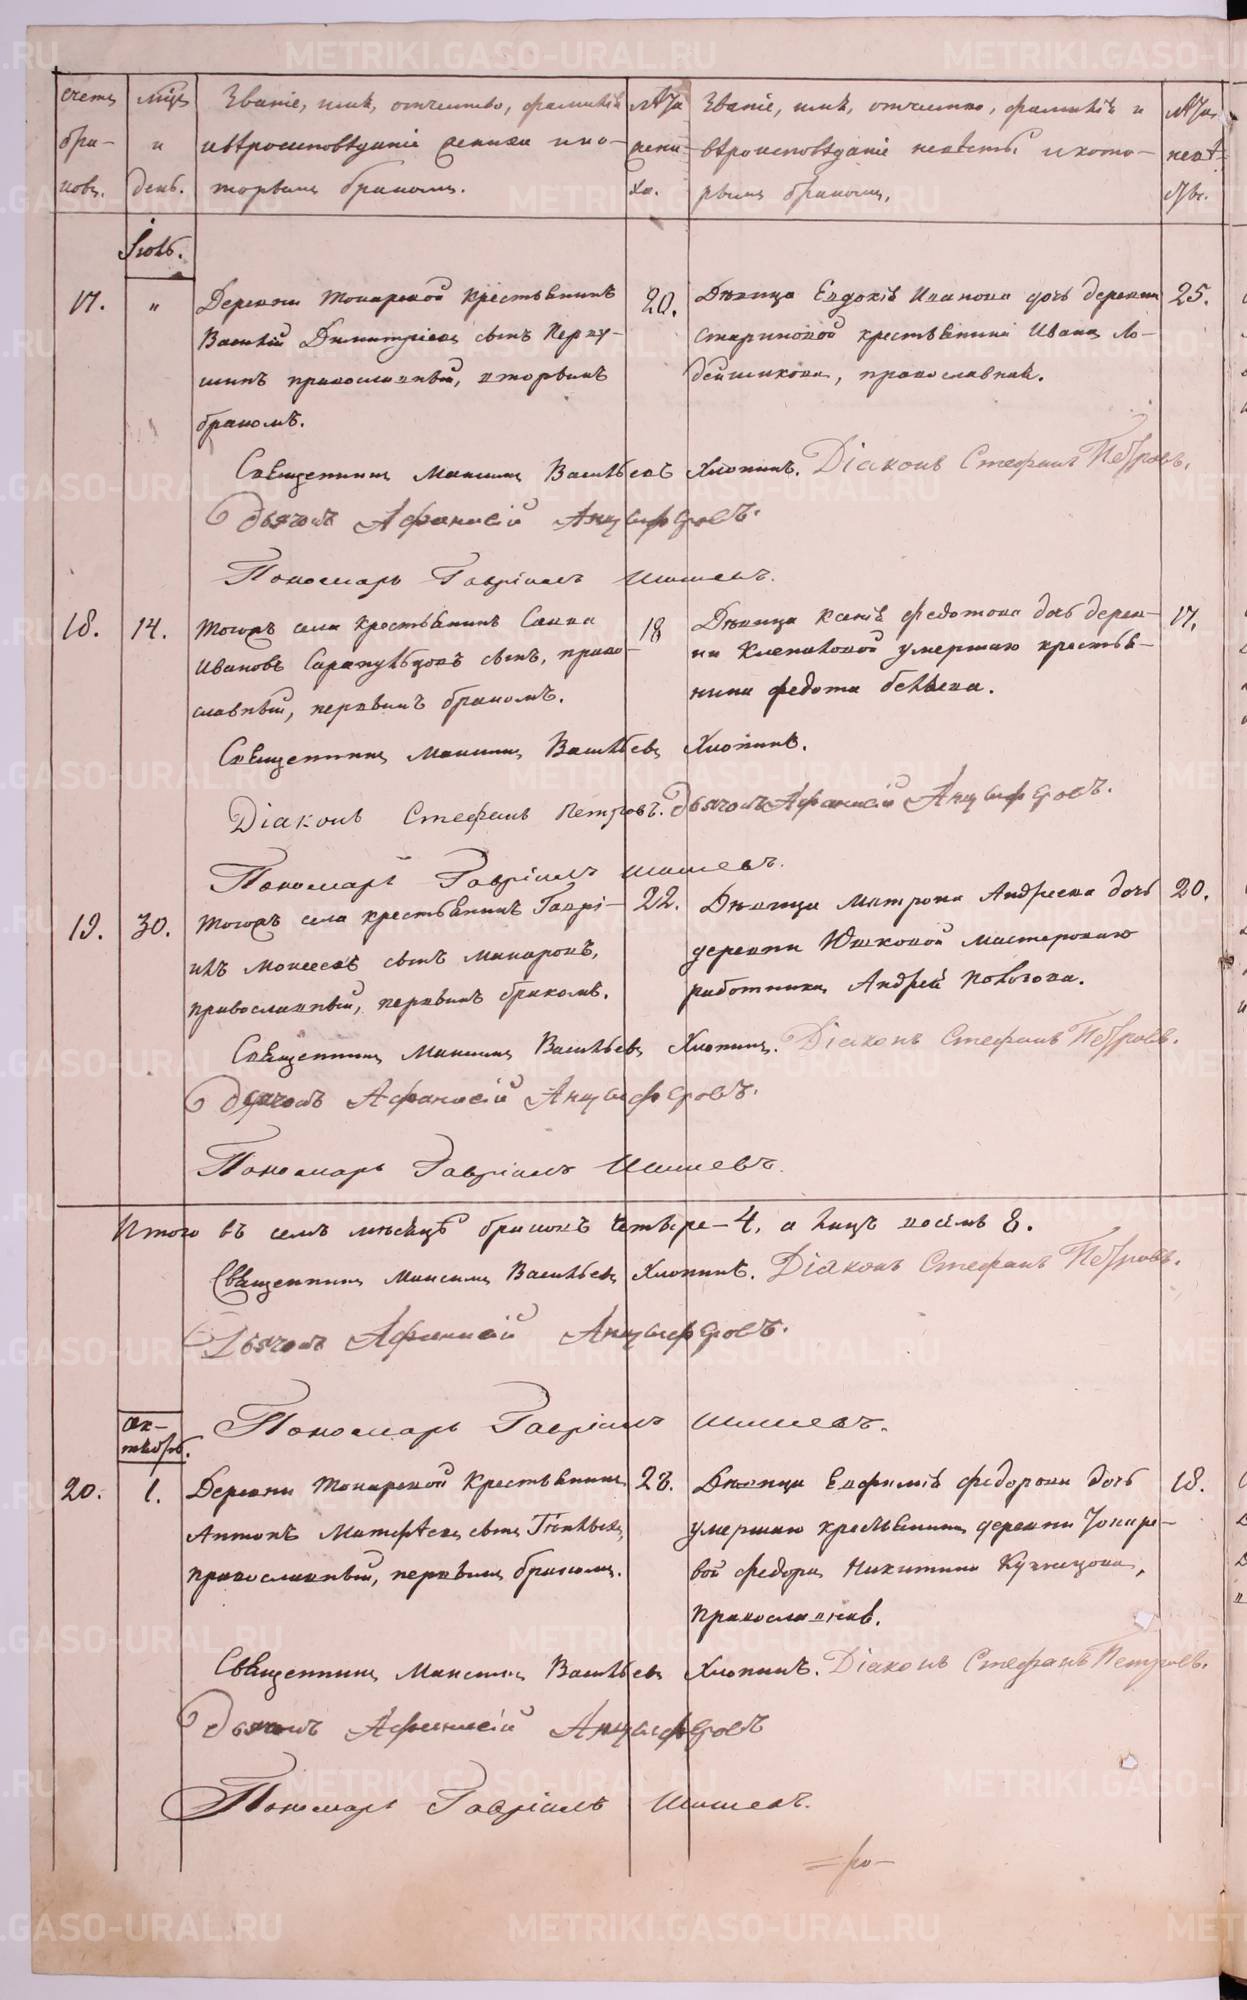 счетъ
бра-
ковъ.
мцъ
и
день.
Званіе, имя, отчество, фамилія
и вѣроисповѣданіе жениха и ко-
торымъ бракомъ.
лѣта
жени-
ха.
Званіе, имя, отчество, фамилія и
вѣроисповѣданіе невѣсты и кото-
рымъ бракомъ.
лѣта
невѣ-
сты.
Іюль.
17. „ Деревни Токаревой крестьянинъ 20. Дѣвица Евдокія Иванова дочь деревни 25.
Василій Димитріевъ сынъ Перву- Стариковой крестьянина Ивана Ло-
шинъ православный, вторымъ дейщикова, православная.
бракомъ.
Священникъ Максимъ Васильевъ Хлопинъ. Діаконъ Стефанъ Петровъ.
Дьячокъ Афанасій Анцыферовъ.
Пономарь Гавріилъ Шишевъ.
18. 14. Тогожъ села крестьянинъ Савва 18 Дѣвица Ксенія Федотова дочь дерев- 17.
Ивановъ Сарапульцовъ сынъ, право- ни Клепаловой умершаго крестья-
славный, первымъ бракомъ. нина Федота Беляева.
Священникъ Максимъ Васильевъ Хлопинъ.
Діаконъ Стефанъ Петровъ. Дьячокъ Афанасій Анцыферовъ.
Пономарь Гавріилъ Шишевъ.
19. 30. Тогожъ села крестьянинъ Гаврі- 22. Дѣвица Матрона Андреева дочь 20.
илъ Моисеевъ сынъ Макаровъ, деревни Юшковой мастероваго
православный, первымъ бракомъ. работника Андрей
Священникъ Максимъ Васильевъ Хлопинъ. Діаконъ Стефанъ Петровъ.
Дьячокъ Афанасій Анцыферовъ.
Пономарь Гавріилъ Шишевъ.
Итого въ семъ мѣсяцѣ браковъ четыре-4, а лицъ восемь 8.
Священникъ Максимъ Васильевъ Хлопинъ. Діаконъ Стефанъ Петровъ.
Дьячокъ Афанасій Анцыферовъ.
Пономарь Гавріилъ Шишевъ.
Ок-
тябрь.
20. 1. Деревни Токаревой крестьянинъ 28. Дѣвица Евфимія Федорова дочь 18.
Антонъ Матфѣевъ сынъ православный, первымъ бракомъ. умершаго крестьянина деревни Токаре-
вой Федора Никитина Кузнецова,
Православная.
Священникъ Максимъ Васильевъ Хлопинъ. Діаконъ Стефанъ Петровъ.
Дьячокъ Афанасій Анцыферовъ
Пономарь Гавріилъ Шишевъ.
METRIKI.GASO-URAL.RU